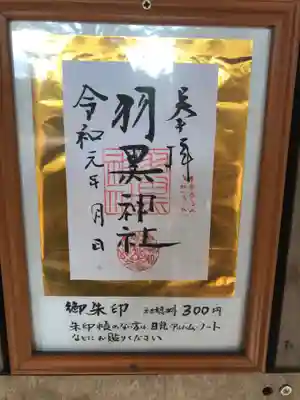 奉拝
羽黒神社
令和元年 月 日
御朱印 初穂料 300円
朱印帳のない方は、日記、アルバム、ノート
などにお貼りください